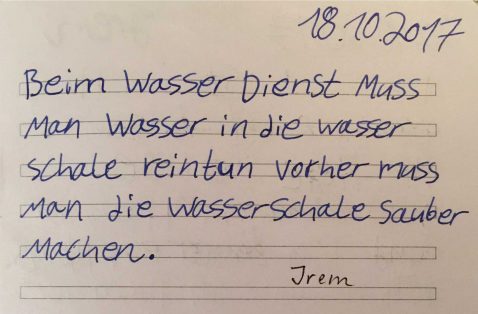 18.10.2017
Beim Wasser Dienst Muss
Man Wasser in die wasser
schale reintun vorher muss
Man die Wasserschale sauber
Machen.
Irem